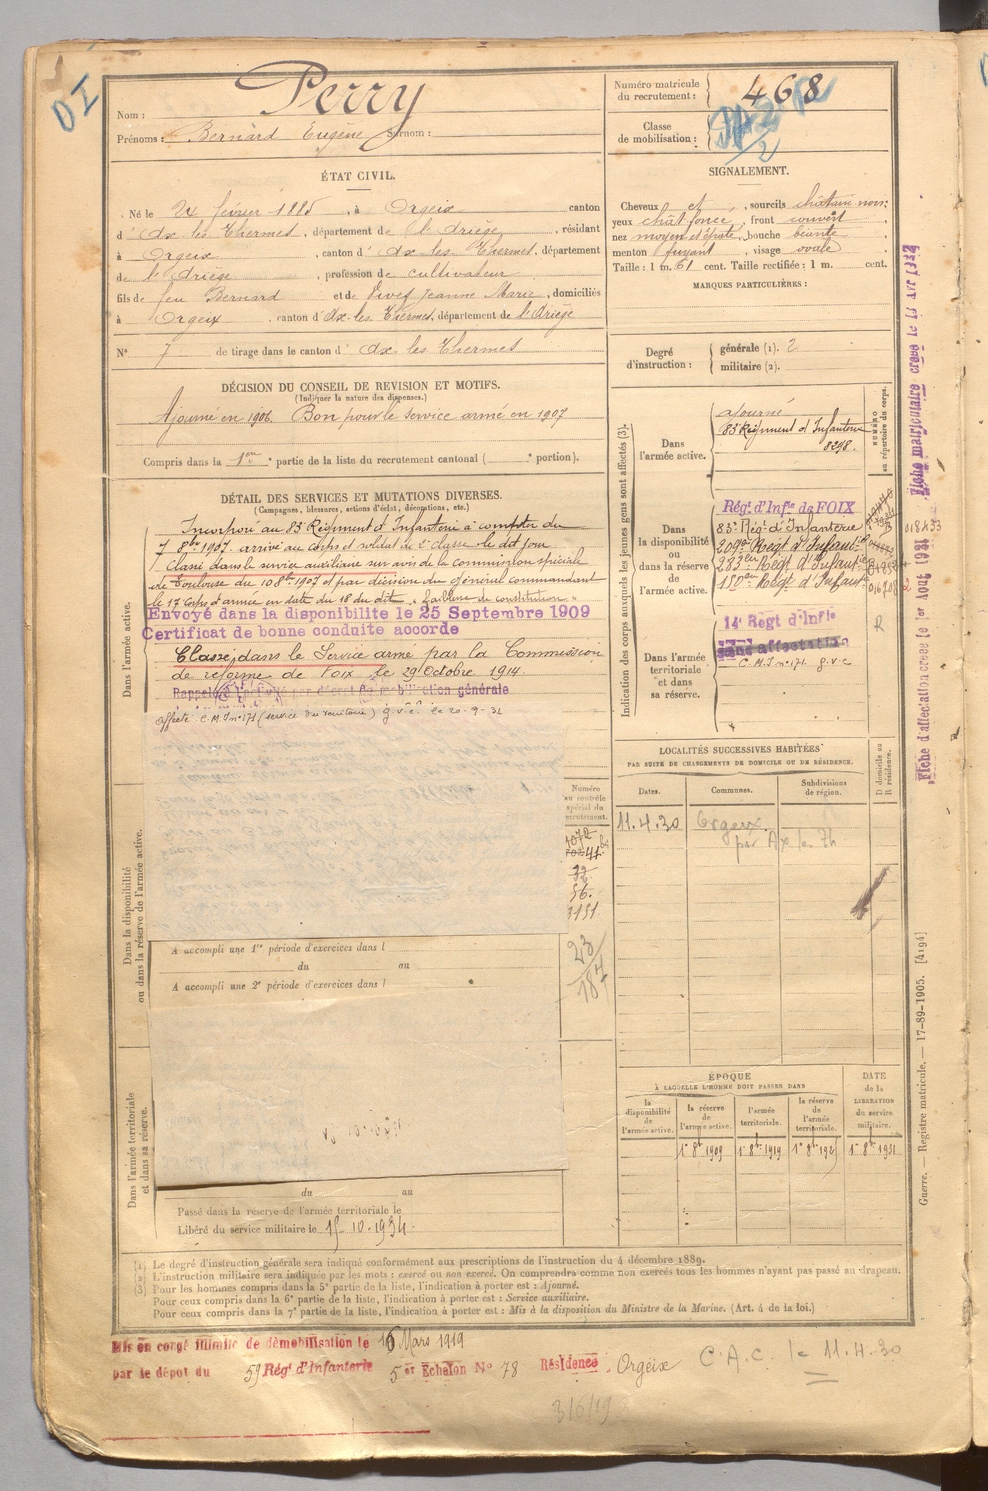 DI
Perry
Nom :
Prénoms : Bernard Eugène Surnom :
Numéro matricule du recrutement : 468
Classe de mobilisation :
ÉTAT CIVIL.
Né le 24 février 1885, à Orgeix canton
d' Ax les Thermes, département de l'Ariège, résidant
à Orgeix, canton d' Ax les Thermes, département
de l'Ariège, profession de cultivateur
fils de feu Bernard et de Jeanne Marie, domiciliés
à Orgeix, canton d'Ax-les-Thermes, département de l'Ariège
N° 7 de tirage dans le canton d' Ax les Thermes
SIGNALEMENT.
Cheveux et, sourcils châtain noir;
yeux chât foncé, front couvert,
nez moyen et épaté, bouche béante,
menton fuyant, visage ovale
Taille : 1 m. 61 cent. Taille rectifiée : 1 m. cent.
MARQUES PARTICULIÈRES :
Degré d'instruction :
générale (1). 2
militaire (2).
DÉCISION DU CONSEIL DE REVISION ET MOTIFS.
(Indiquer la nature des dispenses.)
Ajourné en 1906. Bon pour le service armé en 1907
Compris dans la 1ere partie de la liste du recrutement cantonal ( ° portion).
DÉTAIL DES SERVICES ET MUTATIONS DIVERSES.
(Campagnes, blessures, actions d'éclat, décorations, etc.)
Dans l'armée active.
Incorporé au 83 Régiment d'Infanterie à compter du
7 8bre 1907. arrivé au corps et soldat de 2e classe le dit jour
Classé dans le service auxiliaire sur avis de la commission spéciale
de Toulouse du 10 8bre 1907 et par décision du général commandant
le 17 Corps d'armée en date du 18 du dit. "faiblesse de constitution"
Envoyé dans la disponibilité le 25 Septembre 1909
Certificat de bonne conduite accordé
Classé dans le Service armé par la Commission
de réforme de Foix le 29 Octobre 1914.
Rappelé à l'activité par décret de mobilisation générale
affecté C.M.I n°171 (service du territoire) g.v.c. le 20-9-31
Indication des corps auxquels les jeunes gens sont affectés (3).
Dans l'armée active.
ajourné
83 Régiment d'Infanterie
8298.
NUMÉRO au répertoire du corps.
Dans la disponibilité ou dans la réserve de l'armée active.
Régt d'Infie de FOIX
83e Régt d'Infanterie
209e Régt d'Infant
283e Régt d'Infant
150e Régt d'Infant
018433
Dans l'armée territoriale et dans sa réserve.
14e Régt d'Infie
sans affectation
C.M.I n°171. g.v.c
R
Fiche matricule créée le
Fiche d'affectation créée le 1er AOUT 1931
LOCALITÉS SUCCESSIVES HABITÉES
PAR SUITE DE CHANGEMENTS DE DOMICILE OU DE RÉSIDENCE.
Dates.
Communes.
Subdivisions de région.
D domicile ou R résidence.
11.4.30 Orgeix
par Ax les Th
Dans la disponibilité ou dans la réserve de l'armée active.
Numéro au contrôle spécial du recrutement.
56.
23
187
A accompli une 1re période d'exercices dans l
du au
A accompli une 2e période d'exercices dans l
Dans l'armée territoriale et dans sa réserve.
du au
Passé dans la réserve de l'armée territoriale le
Libéré du service militaire le 15-10-1934
ÉPOQUE
À LAQUELLE L'HOMME DOIT PASSER DANS
la disponibilité de l'armée active.
la réserve de l'armée active.
l'armée territoriale.
la réserve de l'armée territoriale.
DATE de la LIBÉRATION du service militaire.
1er 8bre 1909
1er 8bre 1919
1er 8bre 192
1er 8bre 1931
Guerre. — Registre matricule. — 17-89-1905. [4194]
(1) Le degré d'instruction générale sera indiqué conformément aux prescriptions de l'instruction du 4 décembre 1889.
(2) L'instruction militaire sera indiquée par les mots : exercé ou non exercé. On comprendra comme non exercés tous les hommes n'ayant pas passé au drapeau.
(3) Pour les hommes compris dans la 5e partie de la liste, l'indication à porter est : Ajourné.
Pour ceux compris dans la 6e partie de la liste, l'indication à porter est : Service auxiliaire.
Pour ceux compris dans la 7e partie de la liste, l'indication à porter est : Mis à la disposition du Ministre de la Marine. (Art. 4 de la loi.)
Mis en congé illimité de démobilisation le 16 Mars 1919
par le dépôt du 59 Régt d'Infanterie 5er Echelon N° 78 Résidence Orgeix
C.A.C. le 11.4.30
3/6/19